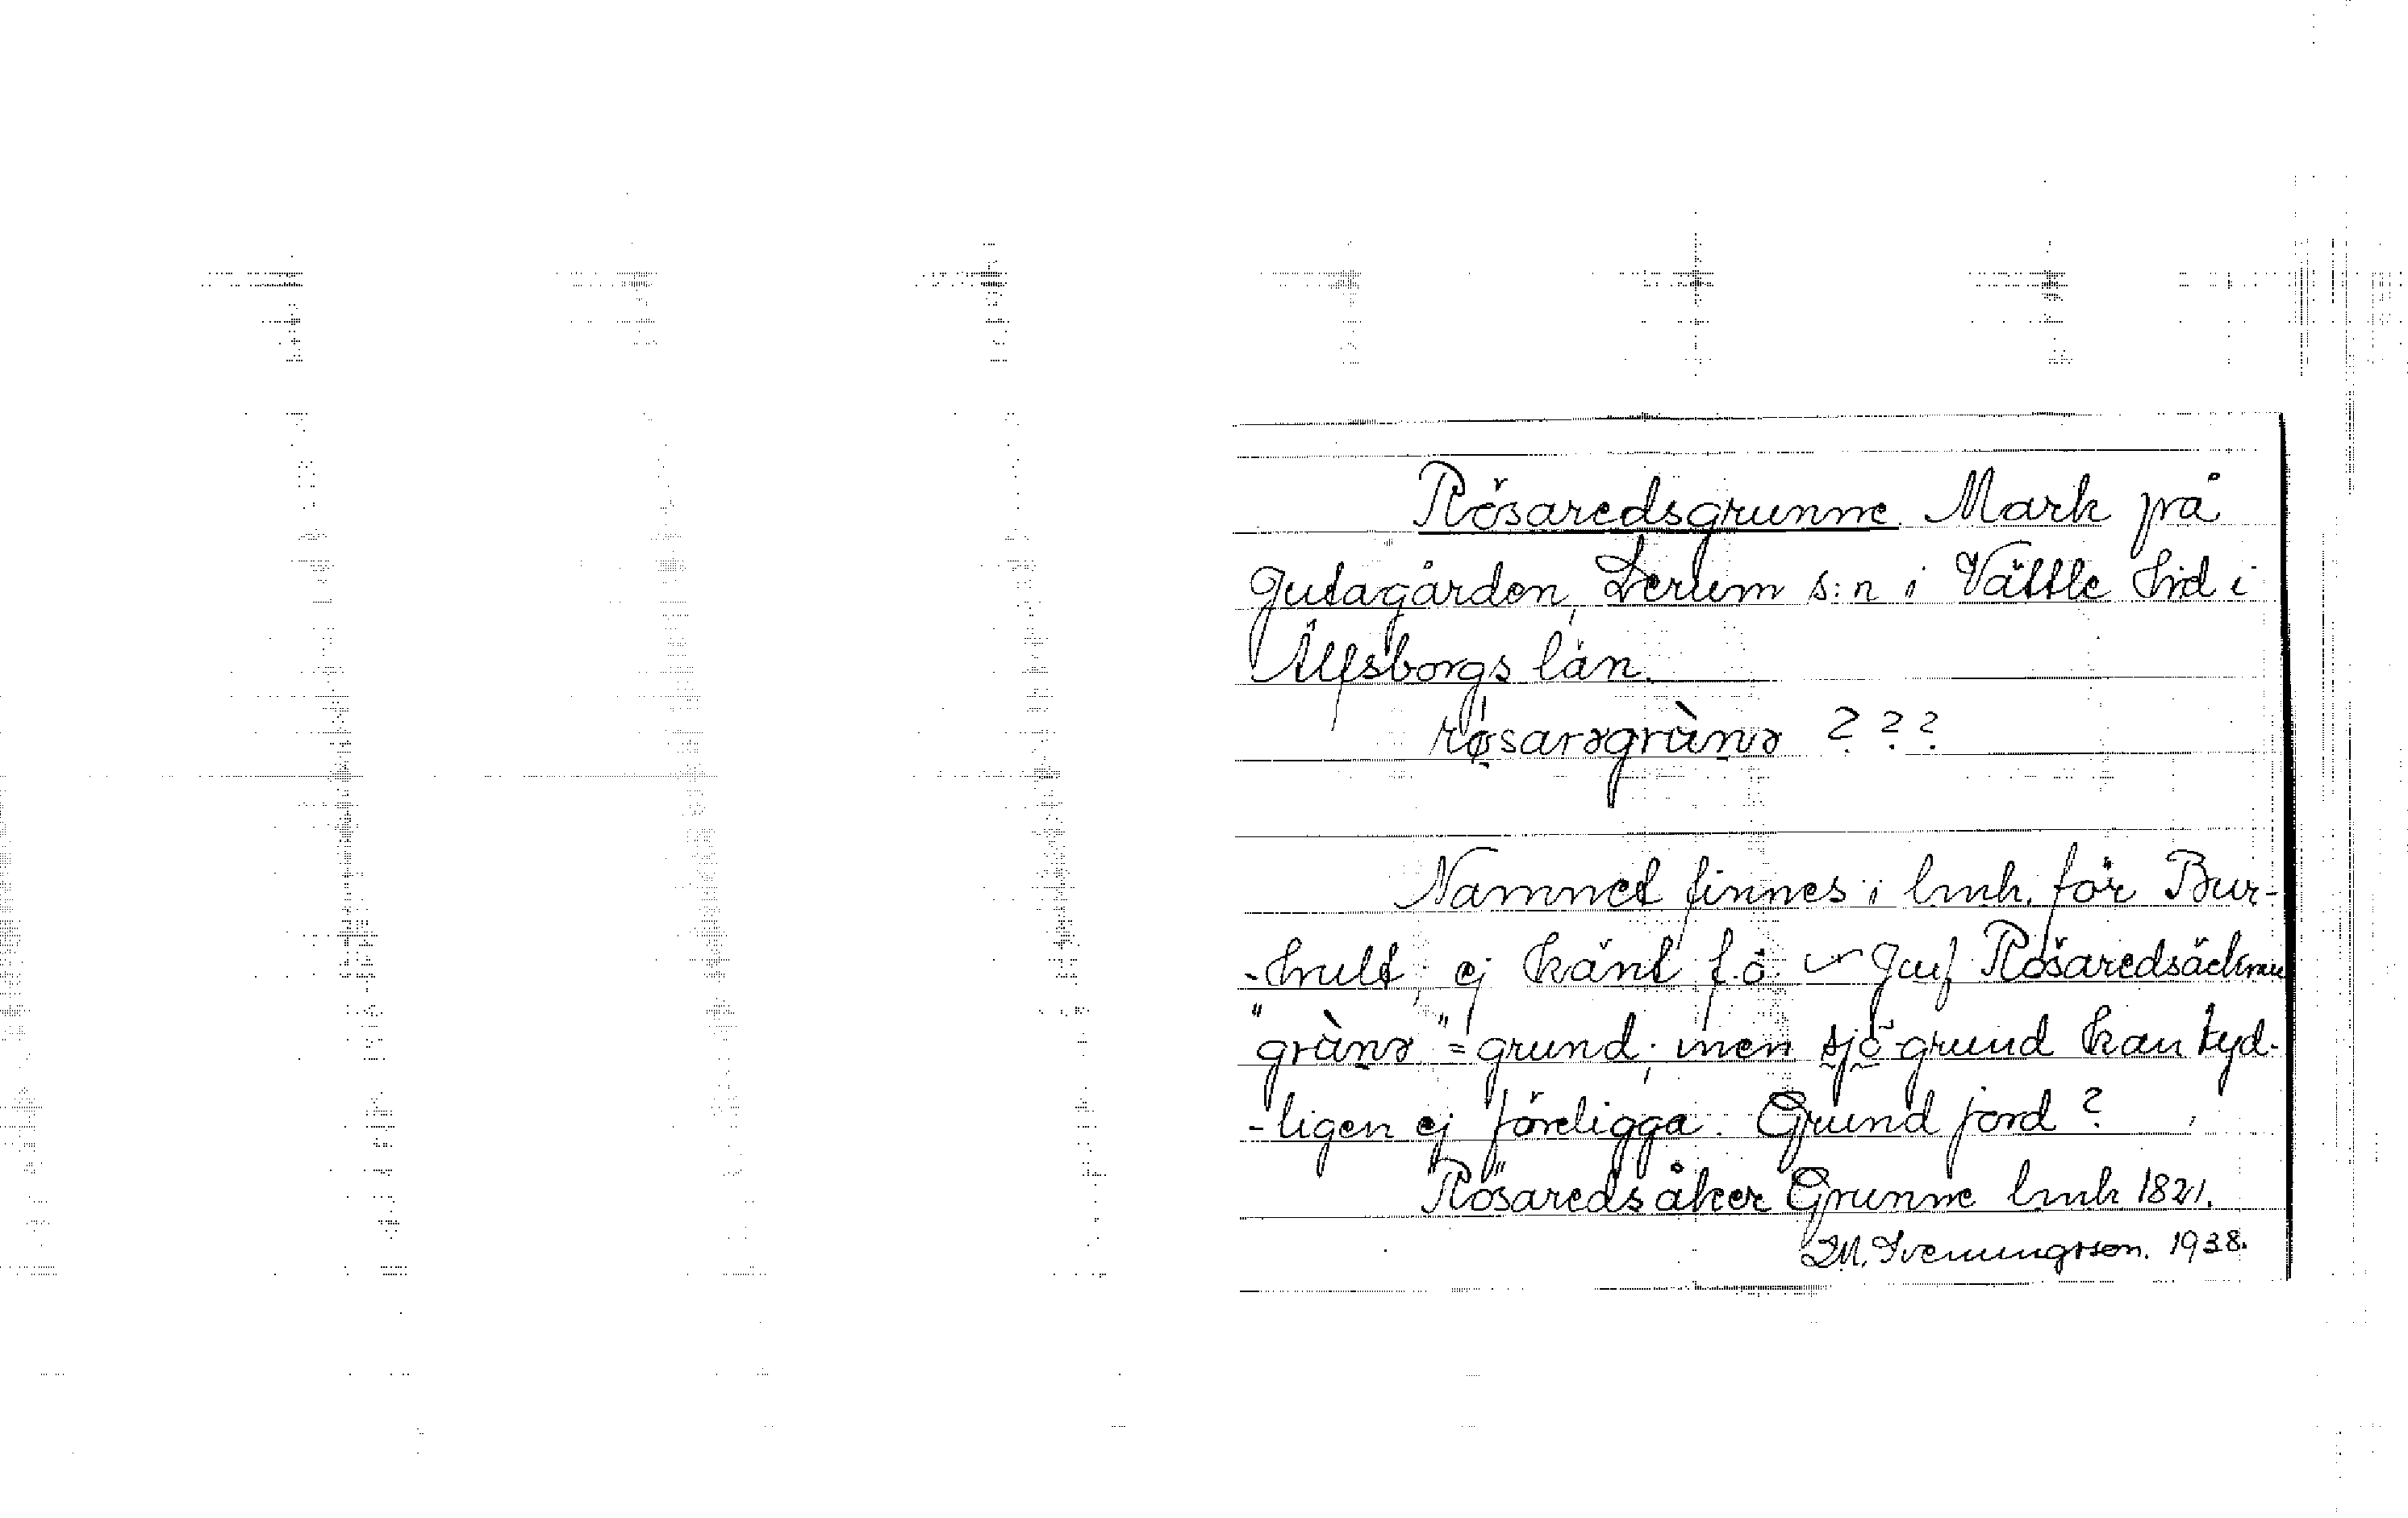 Rösaredsgrunne. Mark på
Jutagården, Lerum s:n i Vättle hrd i
Älfsborgs län.
røsarəgrùnə ? ? ?
Namnet finnes i lmh. för Bur-
-hult, ej känt f. ö. Jmf Rösaredsäckran
"grùnə" = grund; men sjö-grund kan tyd-
-ligen ej föreligga. Grund jord?
Rösaredsåker Grunne lmh 1821.
M. Svenungsson. 1938.